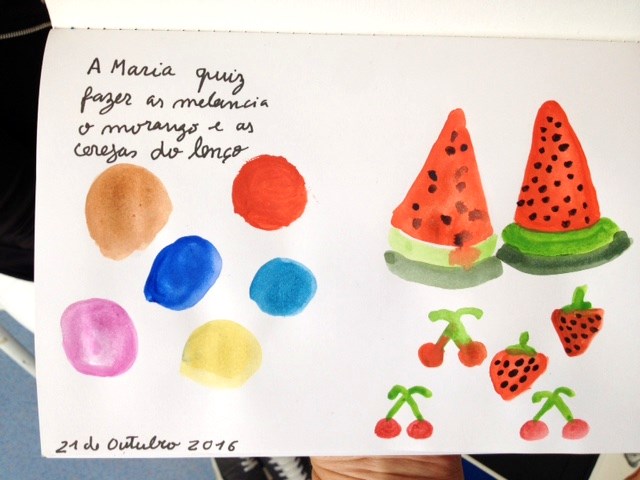 A Maria quiz
fazer as melancia
o morango e as
cerejas do lenço
21 de Outubro 2016